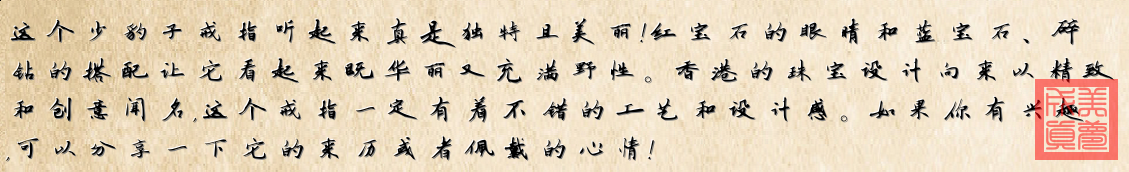 这个少豹子戒指听起来真是独特且美丽!红宝石的眼睛和蓝宝石、碎
钻的搭配让它看起来既华丽又充满野性。香港的珠宝设计向来以精致
和创意闻名,这个戒指一定有着不错的工艺和设计感。如果你有兴趣
,可以分享一下它的来历或者佩戴的心情!
美梦成真